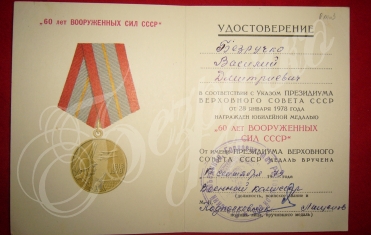 "60 лет ВООРУЖЕННЫХ СИЛ СССР"
УДОСТОВЕРЕНИЕ
Безручко
Василий
Дмитриевич
В СООТВЕТСТВИИ С УКАЗОМ ПРЕЗИДИУМА
ВЕРХОВНОГО СОВЕТА СССР
ОТ 28 ЯНВАРЯ 1978 ГОДА
НАГРАЖДЕН ЮБИЛЕЙНОЙ МЕДАЛЬЮ
"60 ЛЕТ ВООРУЖЕННЫХ
СИЛ СССР"
ОТ ИМЕНИ ПРЕЗИДИУМА ВЕРХОВНОГО
СОВЕТА СССР МЕДАЛЬ ВРУЧЕНА
Военный комиссар